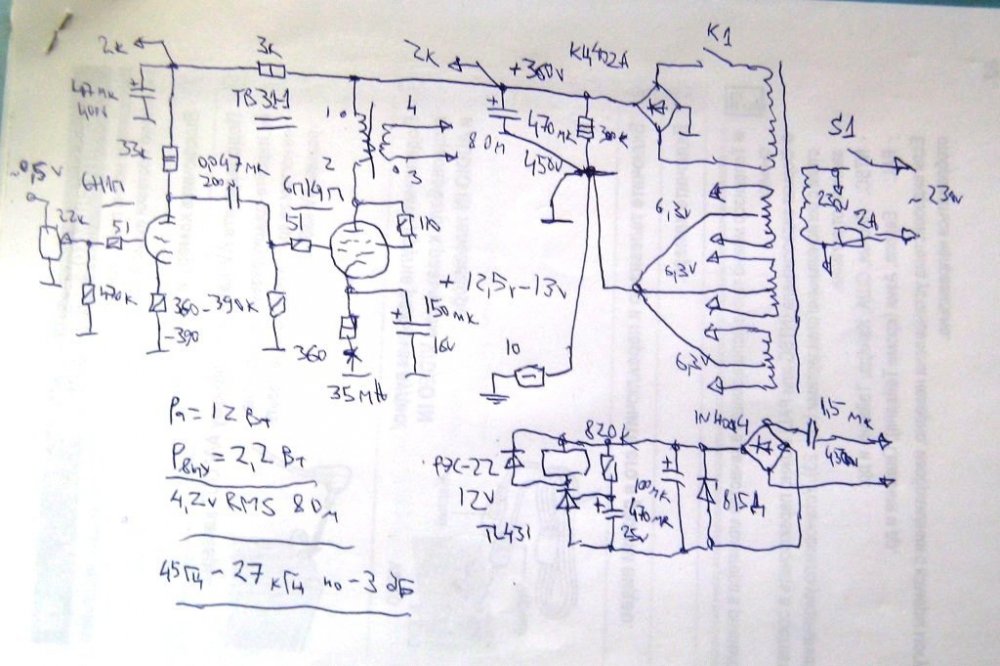 2к
3к
2к
+360v
КЦ402А
К1
47мк
400v
ТВ3Ш
1.
4
80м
470мк
450v
300к
S1
33к
~0,5v
0,047мк
200v
2
3
6Н1П
6П14П
6,3v
230v
~230v
22к
51
51
110
2А
470к
360-390к
-390
+12,5v-13v
150мк
16v
6,3v
360
35мА
10
6,3v
Pа=12 Вт
Pвых=2,2 Вт
4,2v RMS 8 Ом
45Гц - 27 кГц по -3 дБ
820к
1N4004
1,5 мк
РЭС-22
12V
100мк
470мк
25v
815Д
TL431